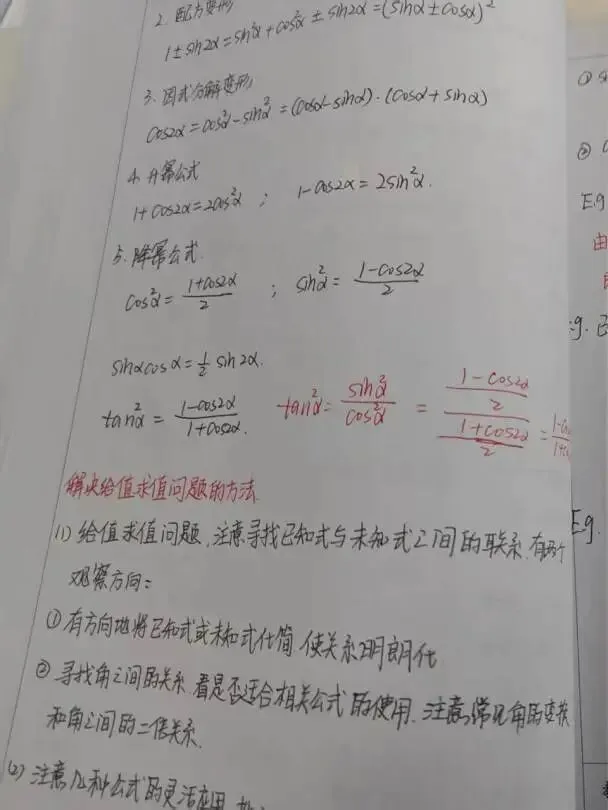 2. 配方变形
1±sin2α=sin²α+cos²α±sin2α=(sinα±cosα)²
3. 因式分解变形
cos2α=cos²α-sin²α=(cosα-sinα)·(cosα+sinα)
4. 升幂公式
1+cos2α=2cos²α ; 1-cos2α=2sin²α.
5. 降幂公式.
cos²α=(1+cos2α)/2 ; sin²α=(1-cos2α)/2
sinαcosα=1/2 sin2α.
tan²α=(1-cos2α)/(1+cos2α). tan²α=sin²α/cos²α=((1-cos2α)/2)/((1+cos2α)/2)=
解决给值求值问题的方法
(1) 给值求值问题,注意寻找已知式与未知式之间的联系,有两个
观察方向:
① 有方向地将已知式或未知式化简,使关系明朗化
② 寻找角之间的关系,看是否适合相关公式的使用,注意常见角的变换
和角之间的二倍关系.
(2) 注意几种公式的灵活应用,如:
①
②
E.g
由
E.g.